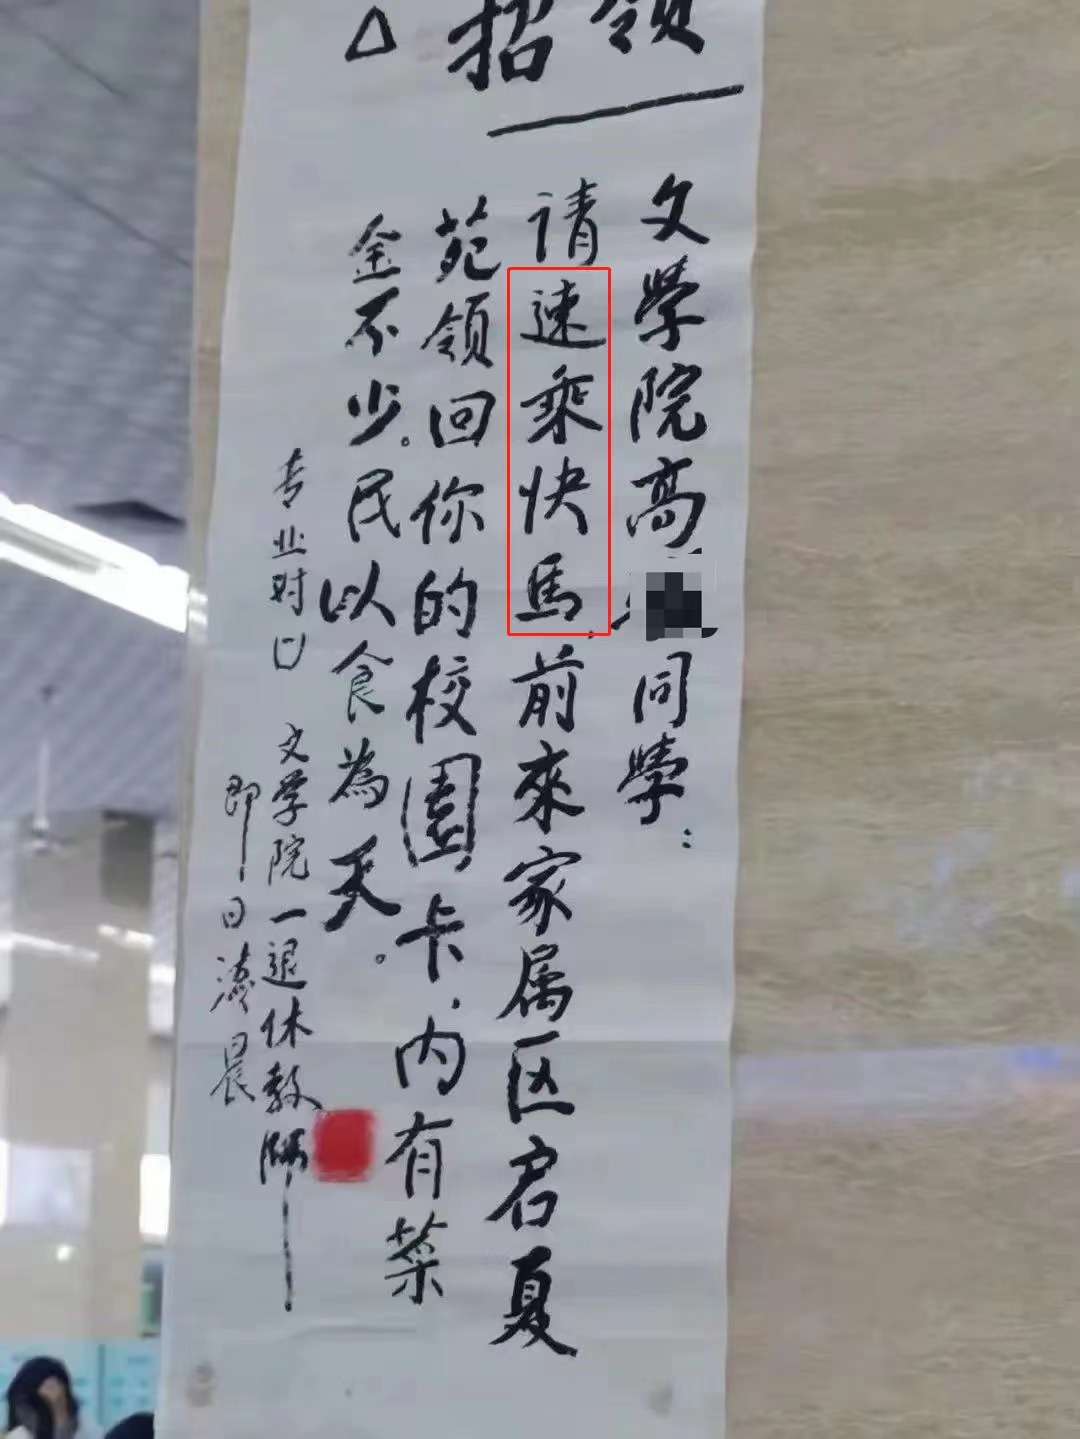 △招领
文學院高同學：
请速乘快馬，前來家属区启夏
苑领回你的校園卡，内有菜
金不少。民以食為天。
专业对口
文学院一退休教师
即日凌晨